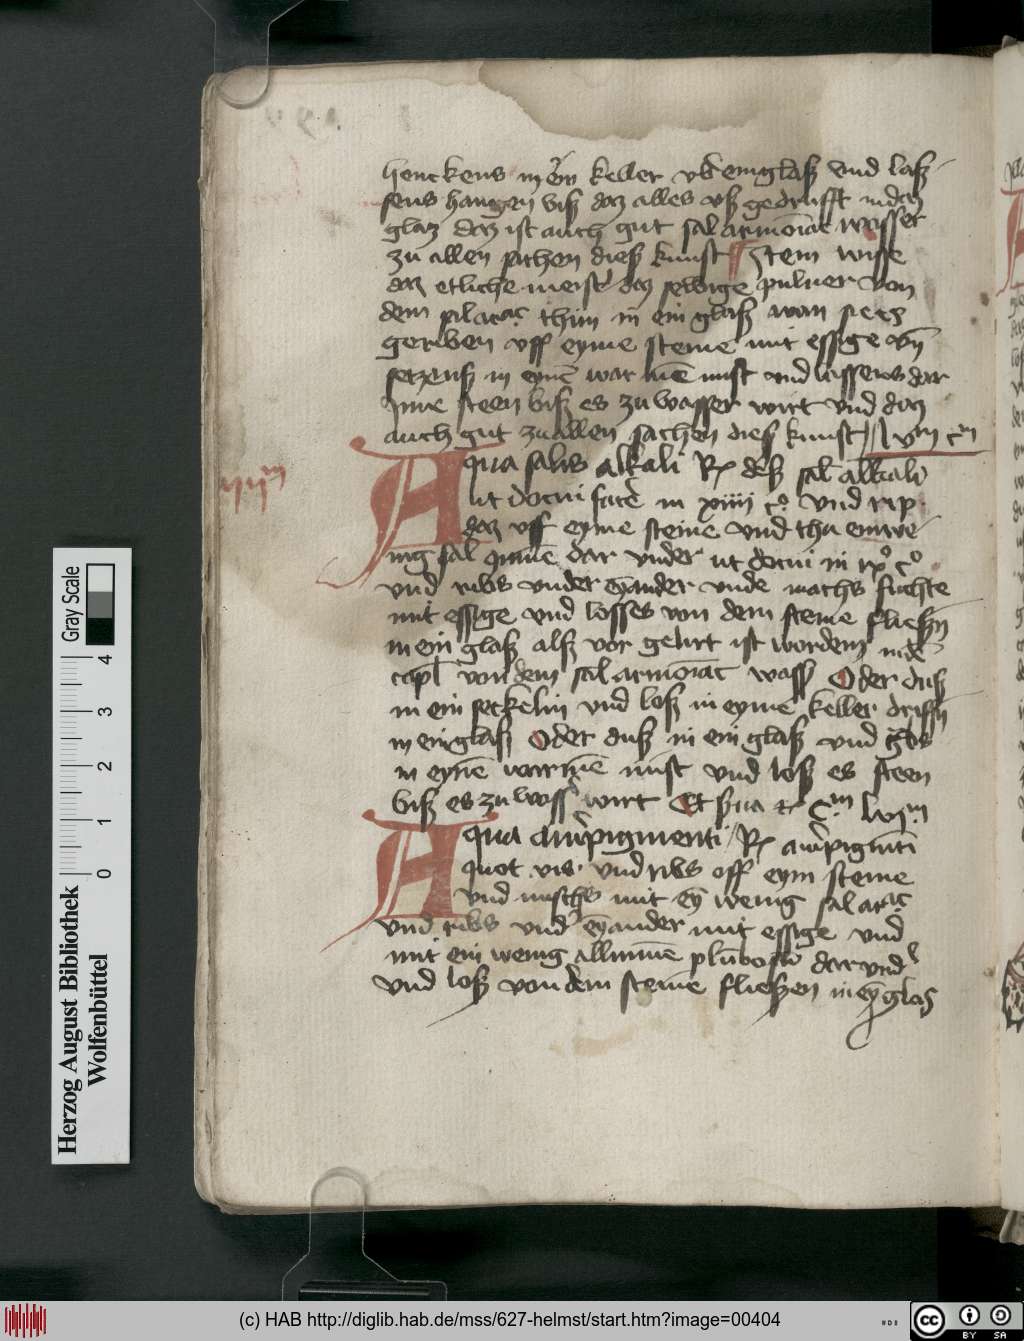 henckens in ein keller vber ein glaß vnd laß
sens hangen biß daz alles vß gedrufft in daz
glaz daz ist auch gut sal armoniac wasser
zu allen sachen dieß kunst Item wisse
daz etliche meister daz selbige puluer von
dem sal arac thun in ein glaß wan sie es
geriben vff eyme steine mit essige vn
setzens in eynen warmen mist vnd lassens dar
Inne steen biß es zu wasser wirt vnd daz
auch gut zu allen sachen dieß kunst
Aqua salis alkali Rx deß sal alkali
ut docui facere in xiiii c° vnd rip
daz vff eyme steine vnd thu ein we
nig sal dar vnder ut docui in c°
vnd ribs vnder eynander vnde machs fuchte
mit essige vnd losses von dem steine fließen
in ein glaß alß vor gelirt ist worden in dem
capl von dem sal armoniac wasser Oder duß
in ein seckelin vnd loß in eyme keller driffen
in ein glaß Oder duß in ein glaß vnd
in eynen warmen mist vnd loß es steen
biß es zu wasser wirt Et
Aqua auripigmenti Rx auripigmenti
quot vis vnd ribs vff eym steine
vnd mischs mit eyn wenig sal arac
vnd ribs vnder eynander mit essige vnd
mit ein wenig alluminen plumosum dar vnder
vnd loß von dem steine fließen in eyn glas
Herzog August Bibliothek
Wolfenbüttel
0 1 2 3 4
Gray Scale
(c) HAB http://diglib.hab.de/mss/627-helmst/start.htm?image=00404
cc BY SA